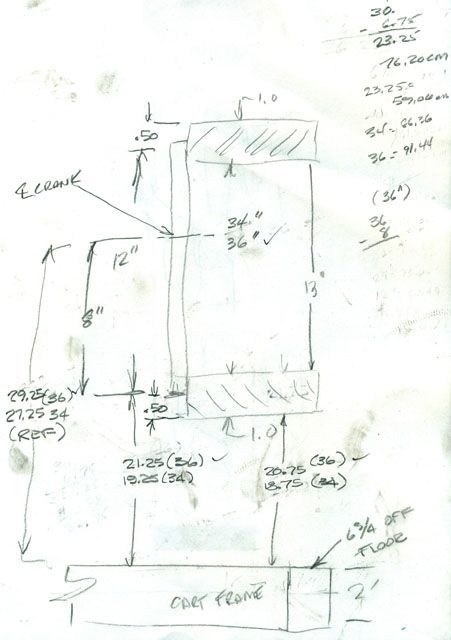 30.
- 6.75
23.25
76.20 cm
23.250
34 = 86.36
36 = 91.44
(36")
36
- 8
1.0
.50
℄ CRANK
34."
36" ✓
12"
8"
13
29.25 (36)
27.25 34
(REF)
.50
1.0
21.25 (36) ✓
19.25 (34)
20.75 (36) ✓
18.75 (34)
6 3/4 OFF
FLOOR
CART FRAME
2'